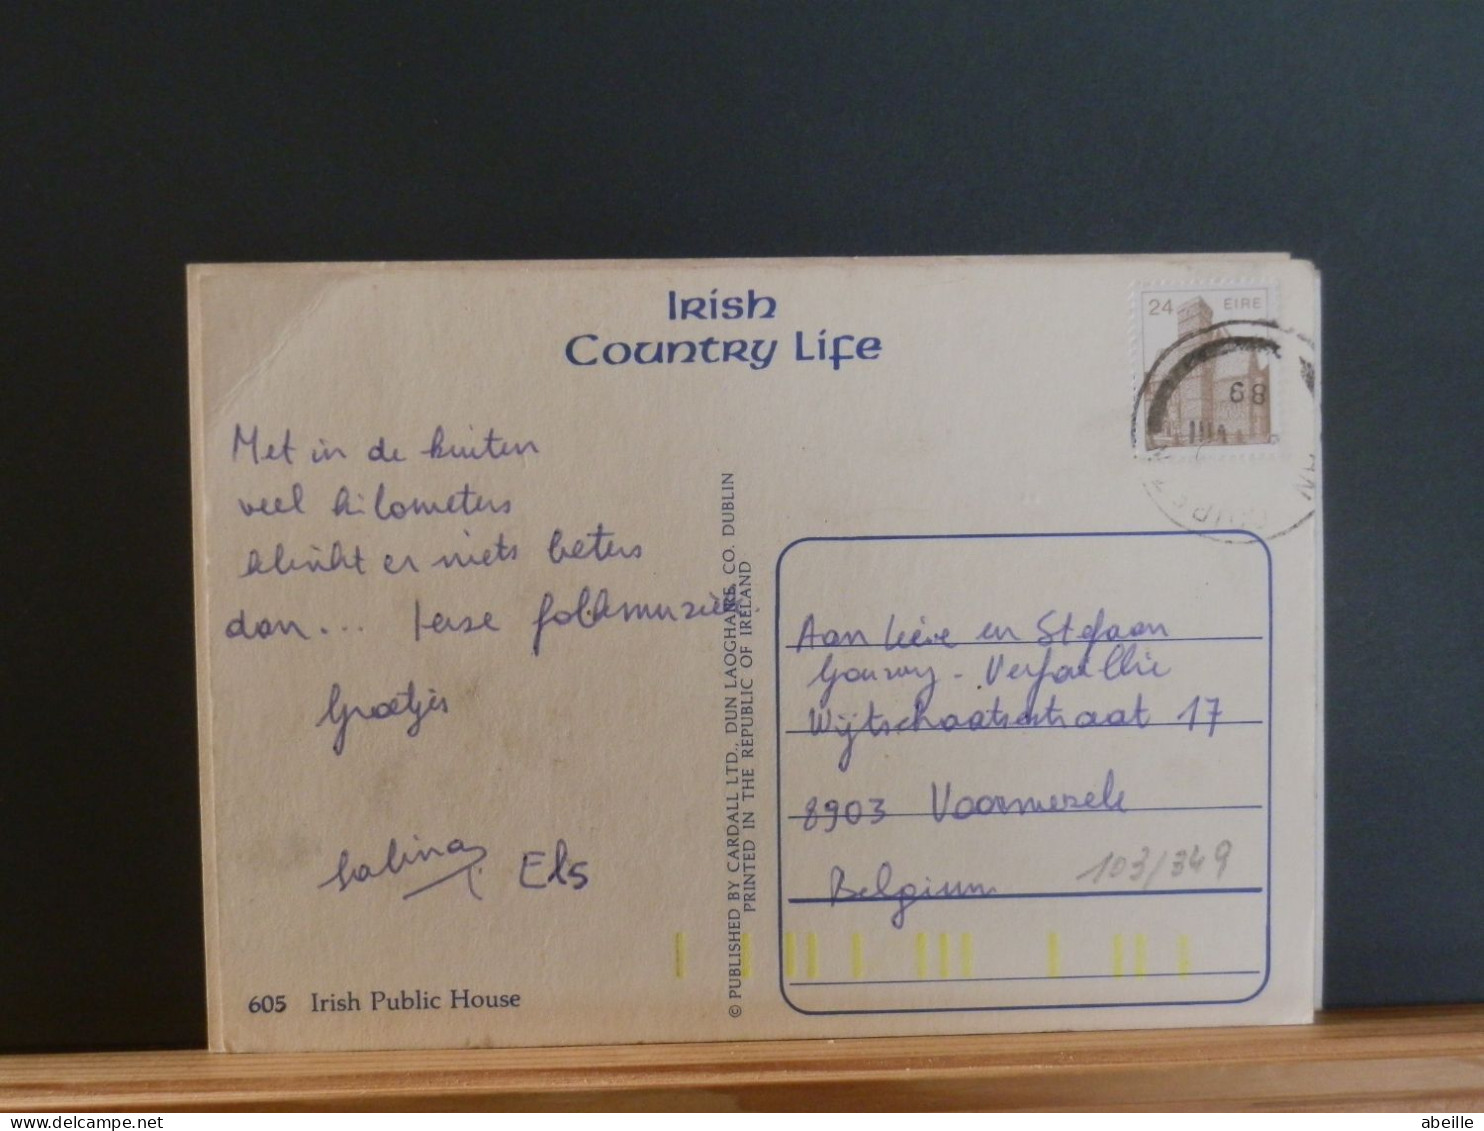 Irish
Country Life
24 ÉIRE
68
Met in de kuiten
veel kilometers
klinkt er niets beters
dan... Ierse folkmuziek
Groetjes
Sabina Els
605 Irish Public House
© PUBLISHED BY CARDALL LTD., DUN LAOGHAIRE, CO. DUBLIN
PRINTED IN THE REPUBLIC OF IRELAND
Aan Lieve en Stefaan
- Verfaillie
Wijtschaatsestraat 17
8903 Voormezele
Belgium
103/349
abeille